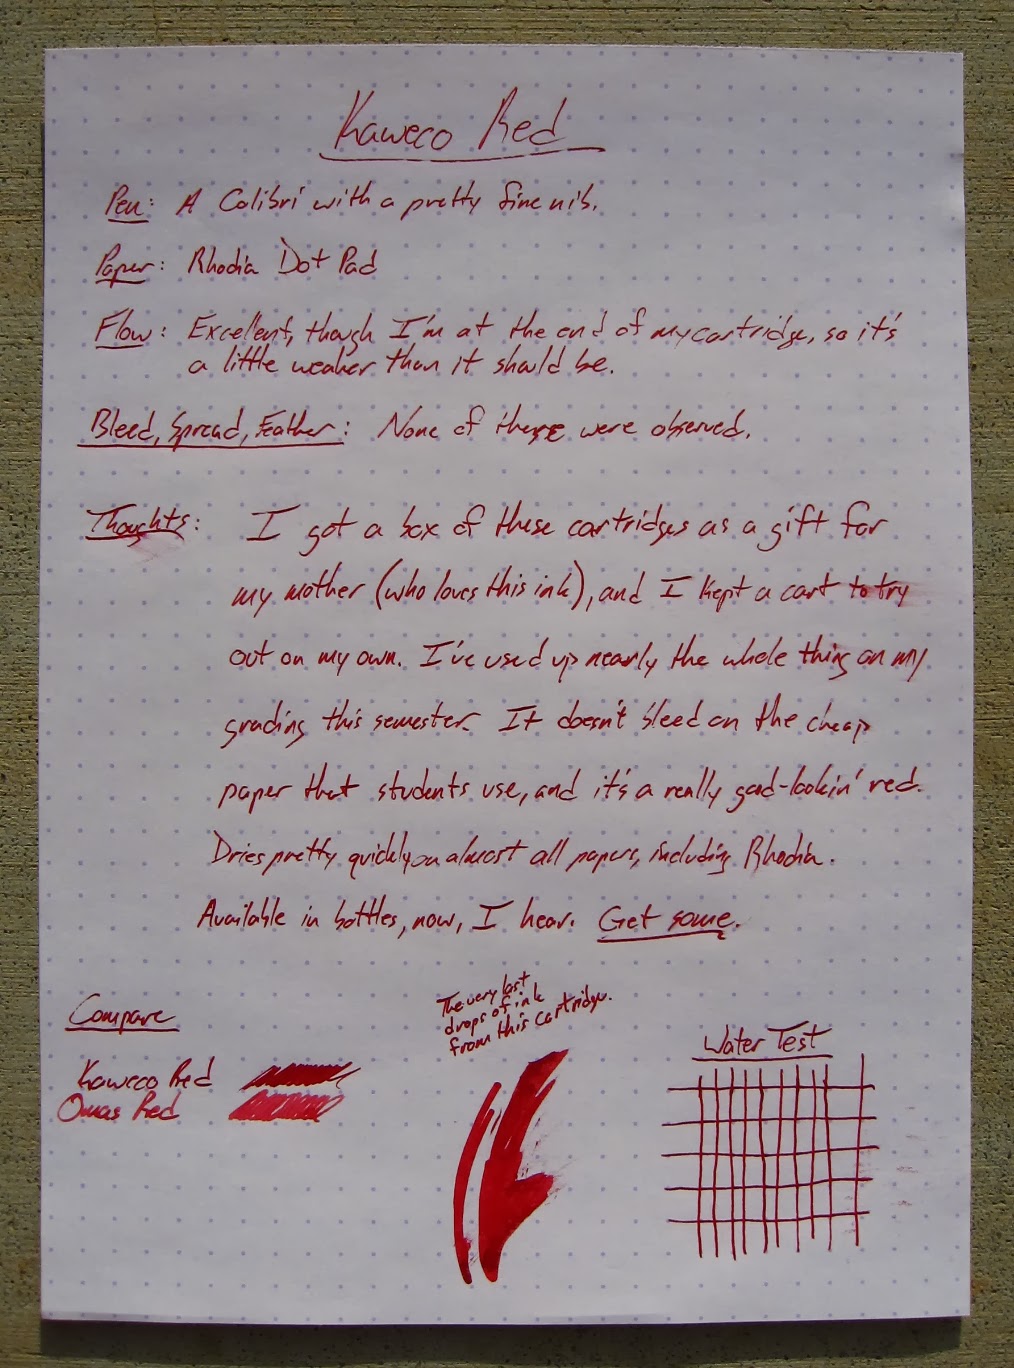 Kaweco Red
Pen: A Colibri with a pretty fine nib.
Paper: Rhodia Dot Pad
Flow: Excellent, though I'm at the end of my cartridge, so it's
a little weaker than it should be.
Bleed, Spread, Feather: None of these were observed.
Thoughts: I got a box of these cartridges as a gift for
my mother (who loves this ink), and I kept a cart to try
out on my own. I've used up nearly the whole thing on my
grading this semester. It doesn't bleed on the cheap
paper that students use, and it's a really good-lookin' red.
Dries pretty quickly on almost all papers, including Rhodia.
Available in bottles, now, I hear. Get some.
The very last
drops of ink
from this cartridge.
Compare
Kaweco Red
Omas Red
Water Test